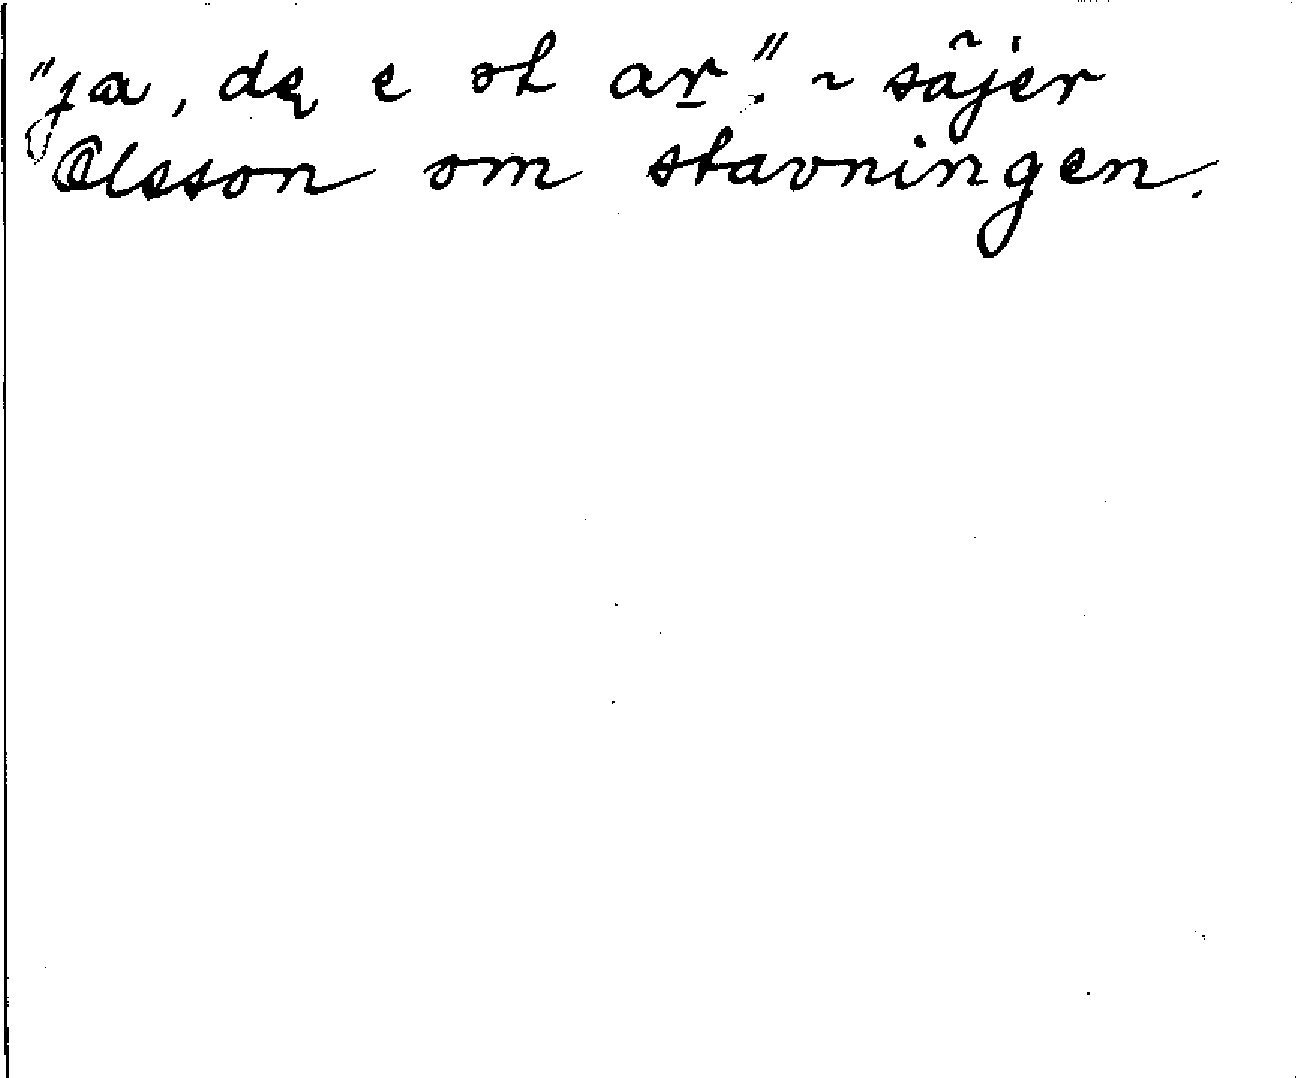 "ja, dę e ot ar̲". ~ säjer
Olsson om stavningen.